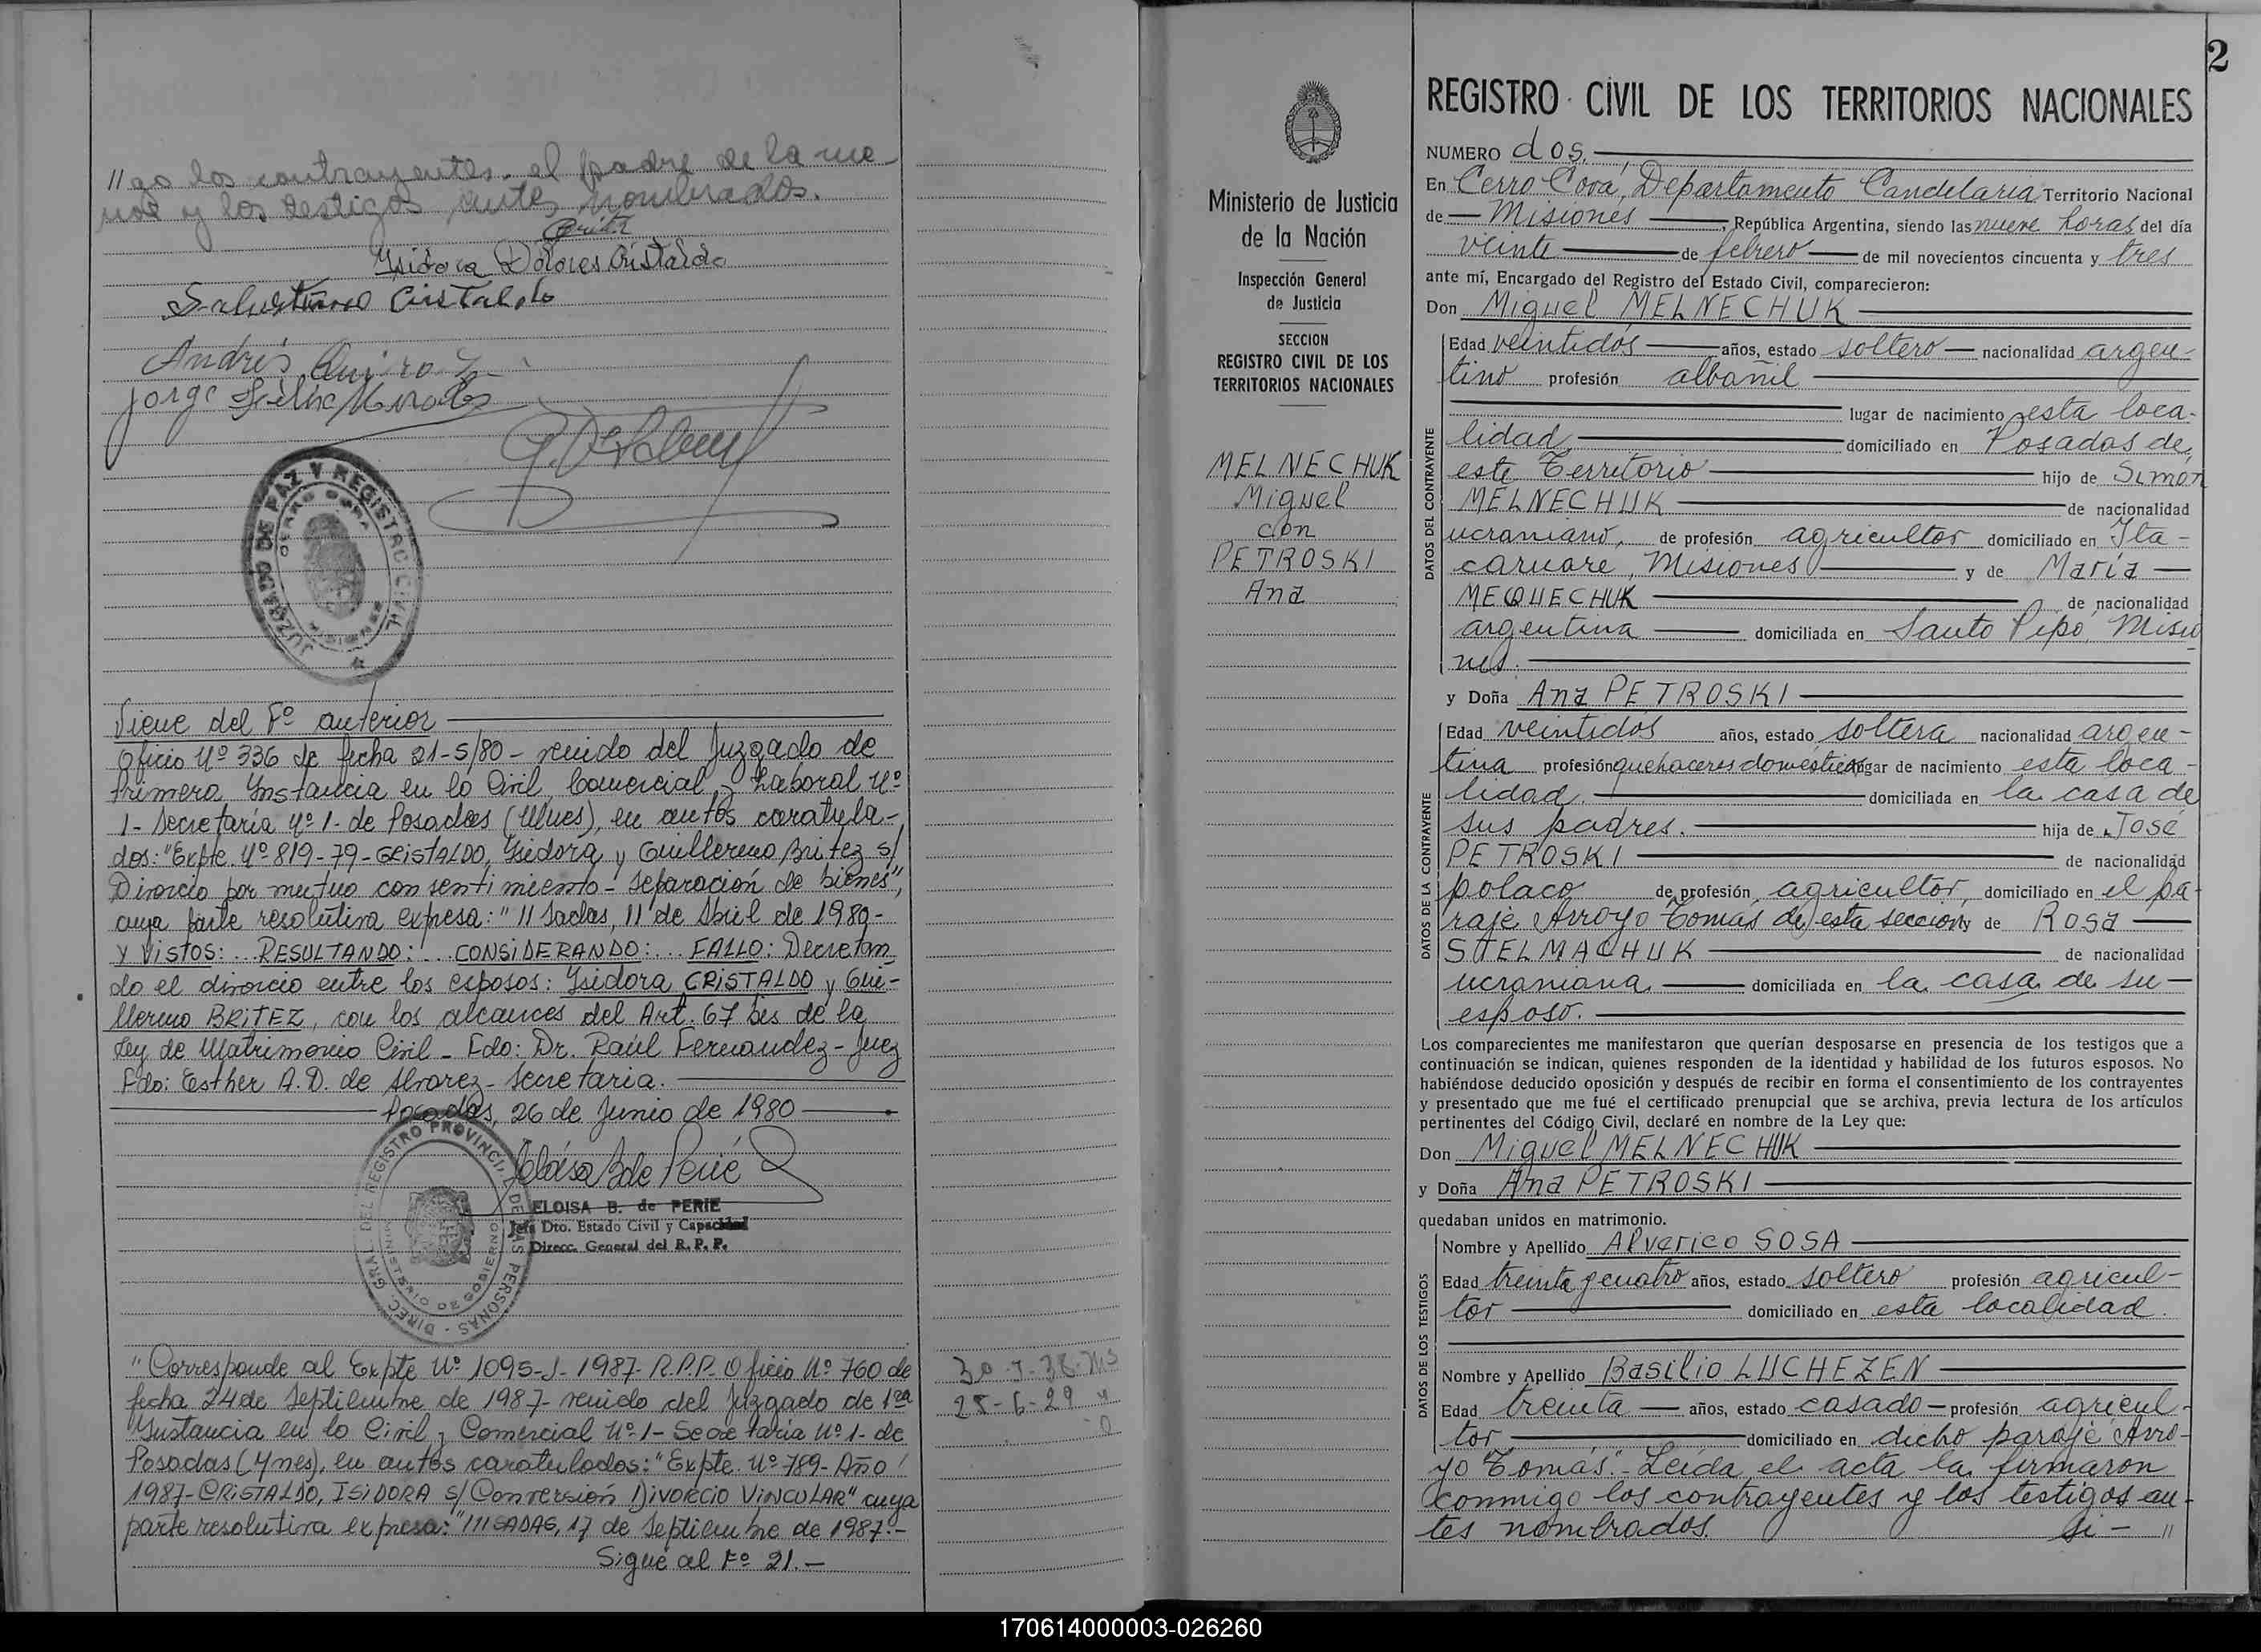 //go los contrayentes, el padre de la me-
nor y los testigos antes nombrados.
Britez
Ysidora Dolores Cristaldo
Salustiano Cristaldo
Andrés Quiroz
Jorge Morales
JUZGADO DE PAZ Y REGISTRO CIVIL
CERRO CORA
MISIONES
Viene del Fº anterior
Oficio Nº 336 de fecha 21-5/80 - venido del Juzgado de
Primera Instancia en lo Civil, Comercial y Laboral Nº
1- Secretaría Nº 1- de Posadas (Mnes), en autos caratula-
dos: "Expte. Nº 819-79-CRISTALDO, Isidora y Guillermo Britez s/
Divorcio por mutuo consentimiento - separación de bienes",
cuya parte resolutiva expresa: "//sadas, 11 de Abril de 1980-
Y VISTOS:... RESULTANDO:... CONSIDERANDO:... FALLO: Decretan
do el divorcio entre los esposos: Isidora CRISTALDO y Gui-
llermo BRITEZ, con los alcances del Art. 67 bis de la
Ley de Matrimonio Civil - Fdo: Dr. Raúl Fernandez - Juez
Fdo: Esther A. D. de Alvarez - Secretaria.
Posadas, 26 de Junio de 1980
Eloisa B de Perié
ELOISA B. de PERIE
Jefa Dto. Estado Civil y Capacidad
Direcc. General del R. P. P.
DIREC. GRAL. DEL REGISTRO PROVINCIAL DE LAS PERSONAS
MINISTERIO DE GOBIERNO
"Corresponde al Expte Nº 1095-J-1987-R.P.P.- Oficio Nº 760 de
fecha 24 de Septiembre de 1987- venido del Juzgado de 1ra
Instancia en lo Civil y Comercial Nº 1- Secretaría Nº 1- de
Posadas (Mnes), en autos caratulados: "Expte. Nº 789- Año
1987-CRISTALDO, ISIDORA s/Conversión Divorcio VINCULAR" cuya
parte resolutiva expresa: "///SADAS, 17 de Septiembre de 1987.-
Sigue al Fº 21.-
25-6-29
Ministerio de Justicia
de la Nación
Inspección General
de Justicia
SECCION
REGISTRO CIVIL DE LOS
TERRITORIOS NACIONALES
MELNECHUK
Miguel
con
PETROSKI
Ana
2
REGISTRO CIVIL DE LOS TERRITORIOS NACIONALES
NUMERO dos.
En Cerro Corá, Departamento Candelaria Territorio Nacional
de Misiones, República Argentina, siendo las nueve horas del día
veinte de febrero de mil novecientos cincuenta y tres
ante mí, Encargado del Registro del Estado Civil, comparecieron:
Don Miguel MELNECHUK
DATOS DEL CONTRAYENTE
Edad veintidós años, estado soltero nacionalidad argen-
tino profesión albañil
lugar de nacimiento esta loca-
lidad, domiciliado en Posadas de
este Territorio hijo de Simón
MELNECHUK de nacionalidad
ucraniano, de profesión agricultor domiciliado en Ita-
caruare, Misiones y de María
MEQUECHUK de nacionalidad
argentina domiciliada en Santo Pipó, Misio
nes.
y Doña Ana PETROSKI
DATOS DE LA CONTRAYENTE
Edad veintidós años, estado soltera nacionalidad argen-
tina profesión quehaceres domésticos lugar de nacimiento esta loca-
lidad. domiciliada en la casa de
sus padres. hija de José
PETROSKI de nacionalidad
polaco de profesión agricultor, domiciliado en el pa-
raje Arroyo Tomás de esta sección y de Rosa
STELMACHUK de nacionalidad
ucraniana domiciliada en la casa de su
esposo.
Los comparecientes me manifestaron que querían desposarse en presencia de los testigos que a
continuación se indican, quienes responden de la identidad y habilidad de los futuros esposos. No
habiéndose deducido oposición y después de recibir en forma el consentimiento de los contrayentes
y presentado que me fué el certificado prenupcial que se archiva, previa lectura de los artículos
pertinentes del Código Civil, declaré en nombre de la Ley que:
Don Miguel MELNECHUK
y Doña Ana PETROSKI
quedaban unidos en matrimonio.
DATOS DE LOS TESTIGOS
Nombre y Apellido Alverico SOSA
Edad treinta y cuatro años, estado soltero profesión agricul-
tor domiciliado en esta localidad.
Nombre y Apellido Basilio LUCHEZEN
Edad treinta años, estado casado profesión agricul-
tor domiciliado en dicho paraje Arro-
yo Tomás".- Leída el acta la firmaron
conmigo los contrayentes y los testigos an-
tes nombrados. si- //
170614000003-026260